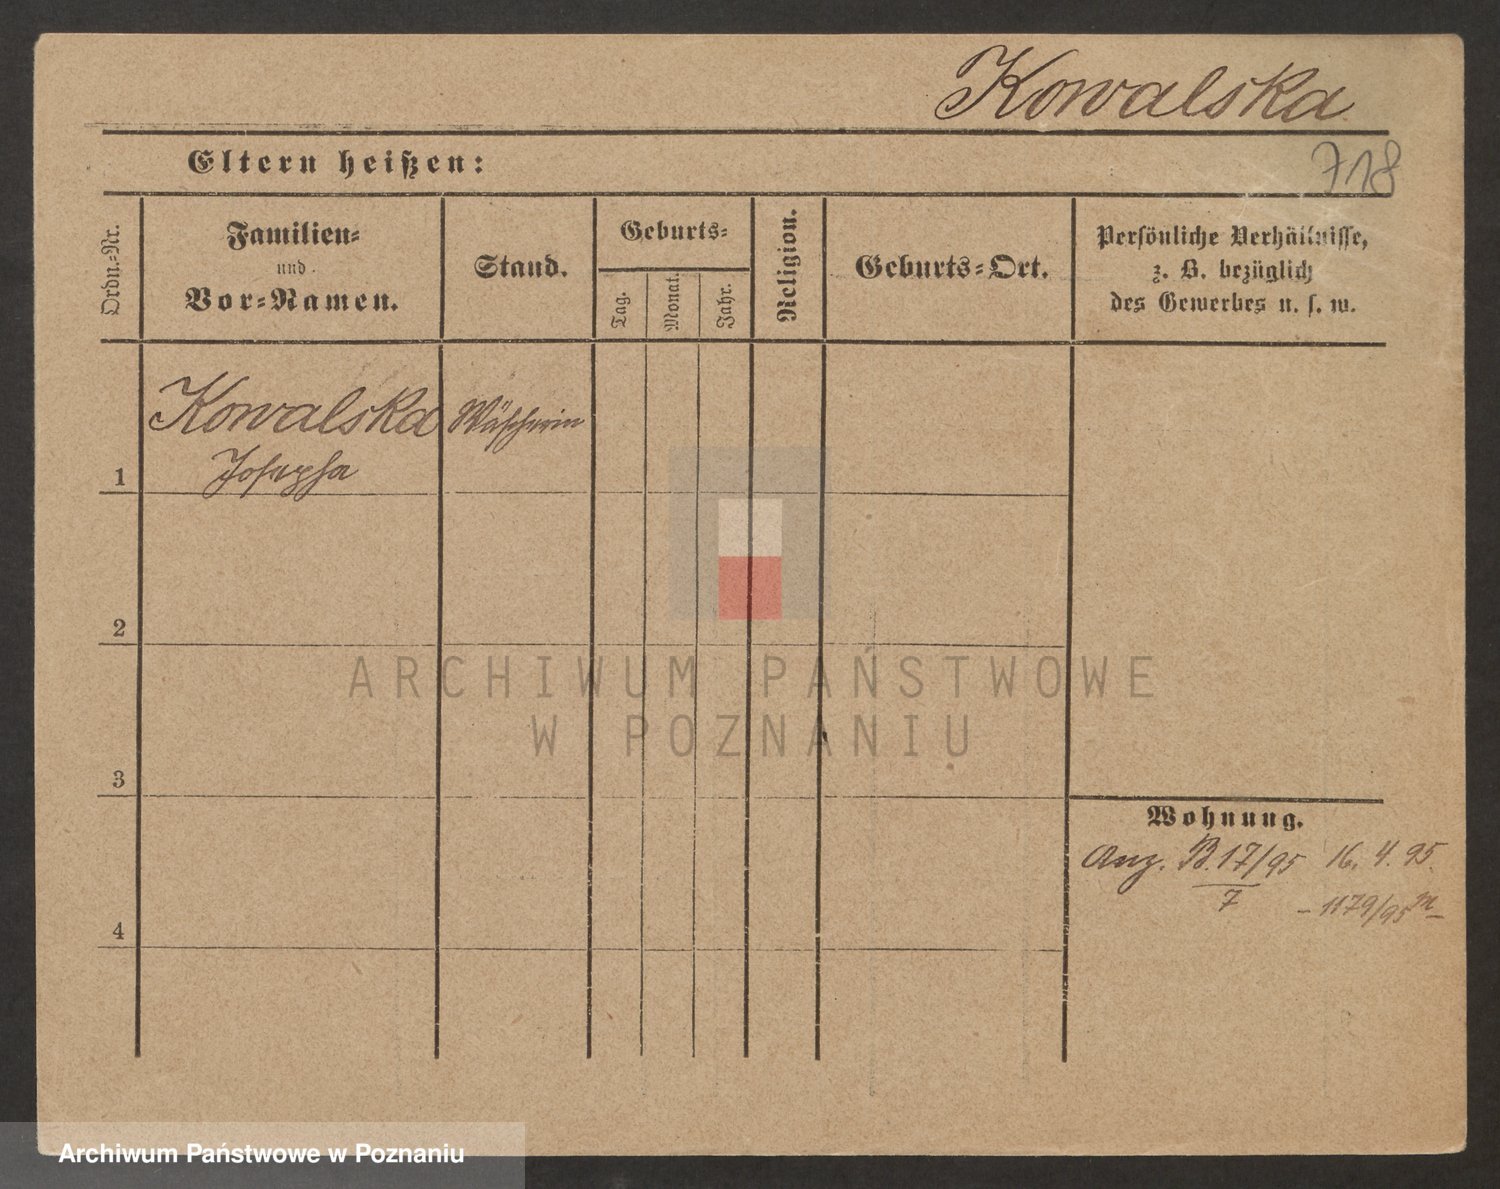 Kowalska
718
Eltern heißen:
Ordn.-Nr.
Familien-
und
Vor-Namen.
Stand.
Geburts-
Tag.
Monat.
Jahr.
Religion.
Geburts-Ort.
Persönliche Verhältnisse,
z. B. bezüglich
des Gewerbes u. s. w.
Kowalska
Josepha
Wäscherin
1
2
3
4
Wohnung.
Anz. B. 17/95 16. 4. 95.
7
- 1179/95
ARCHIWUM PAŃSTWOWE
W POZNANIU
Archiwum Państwowe w Poznaniu